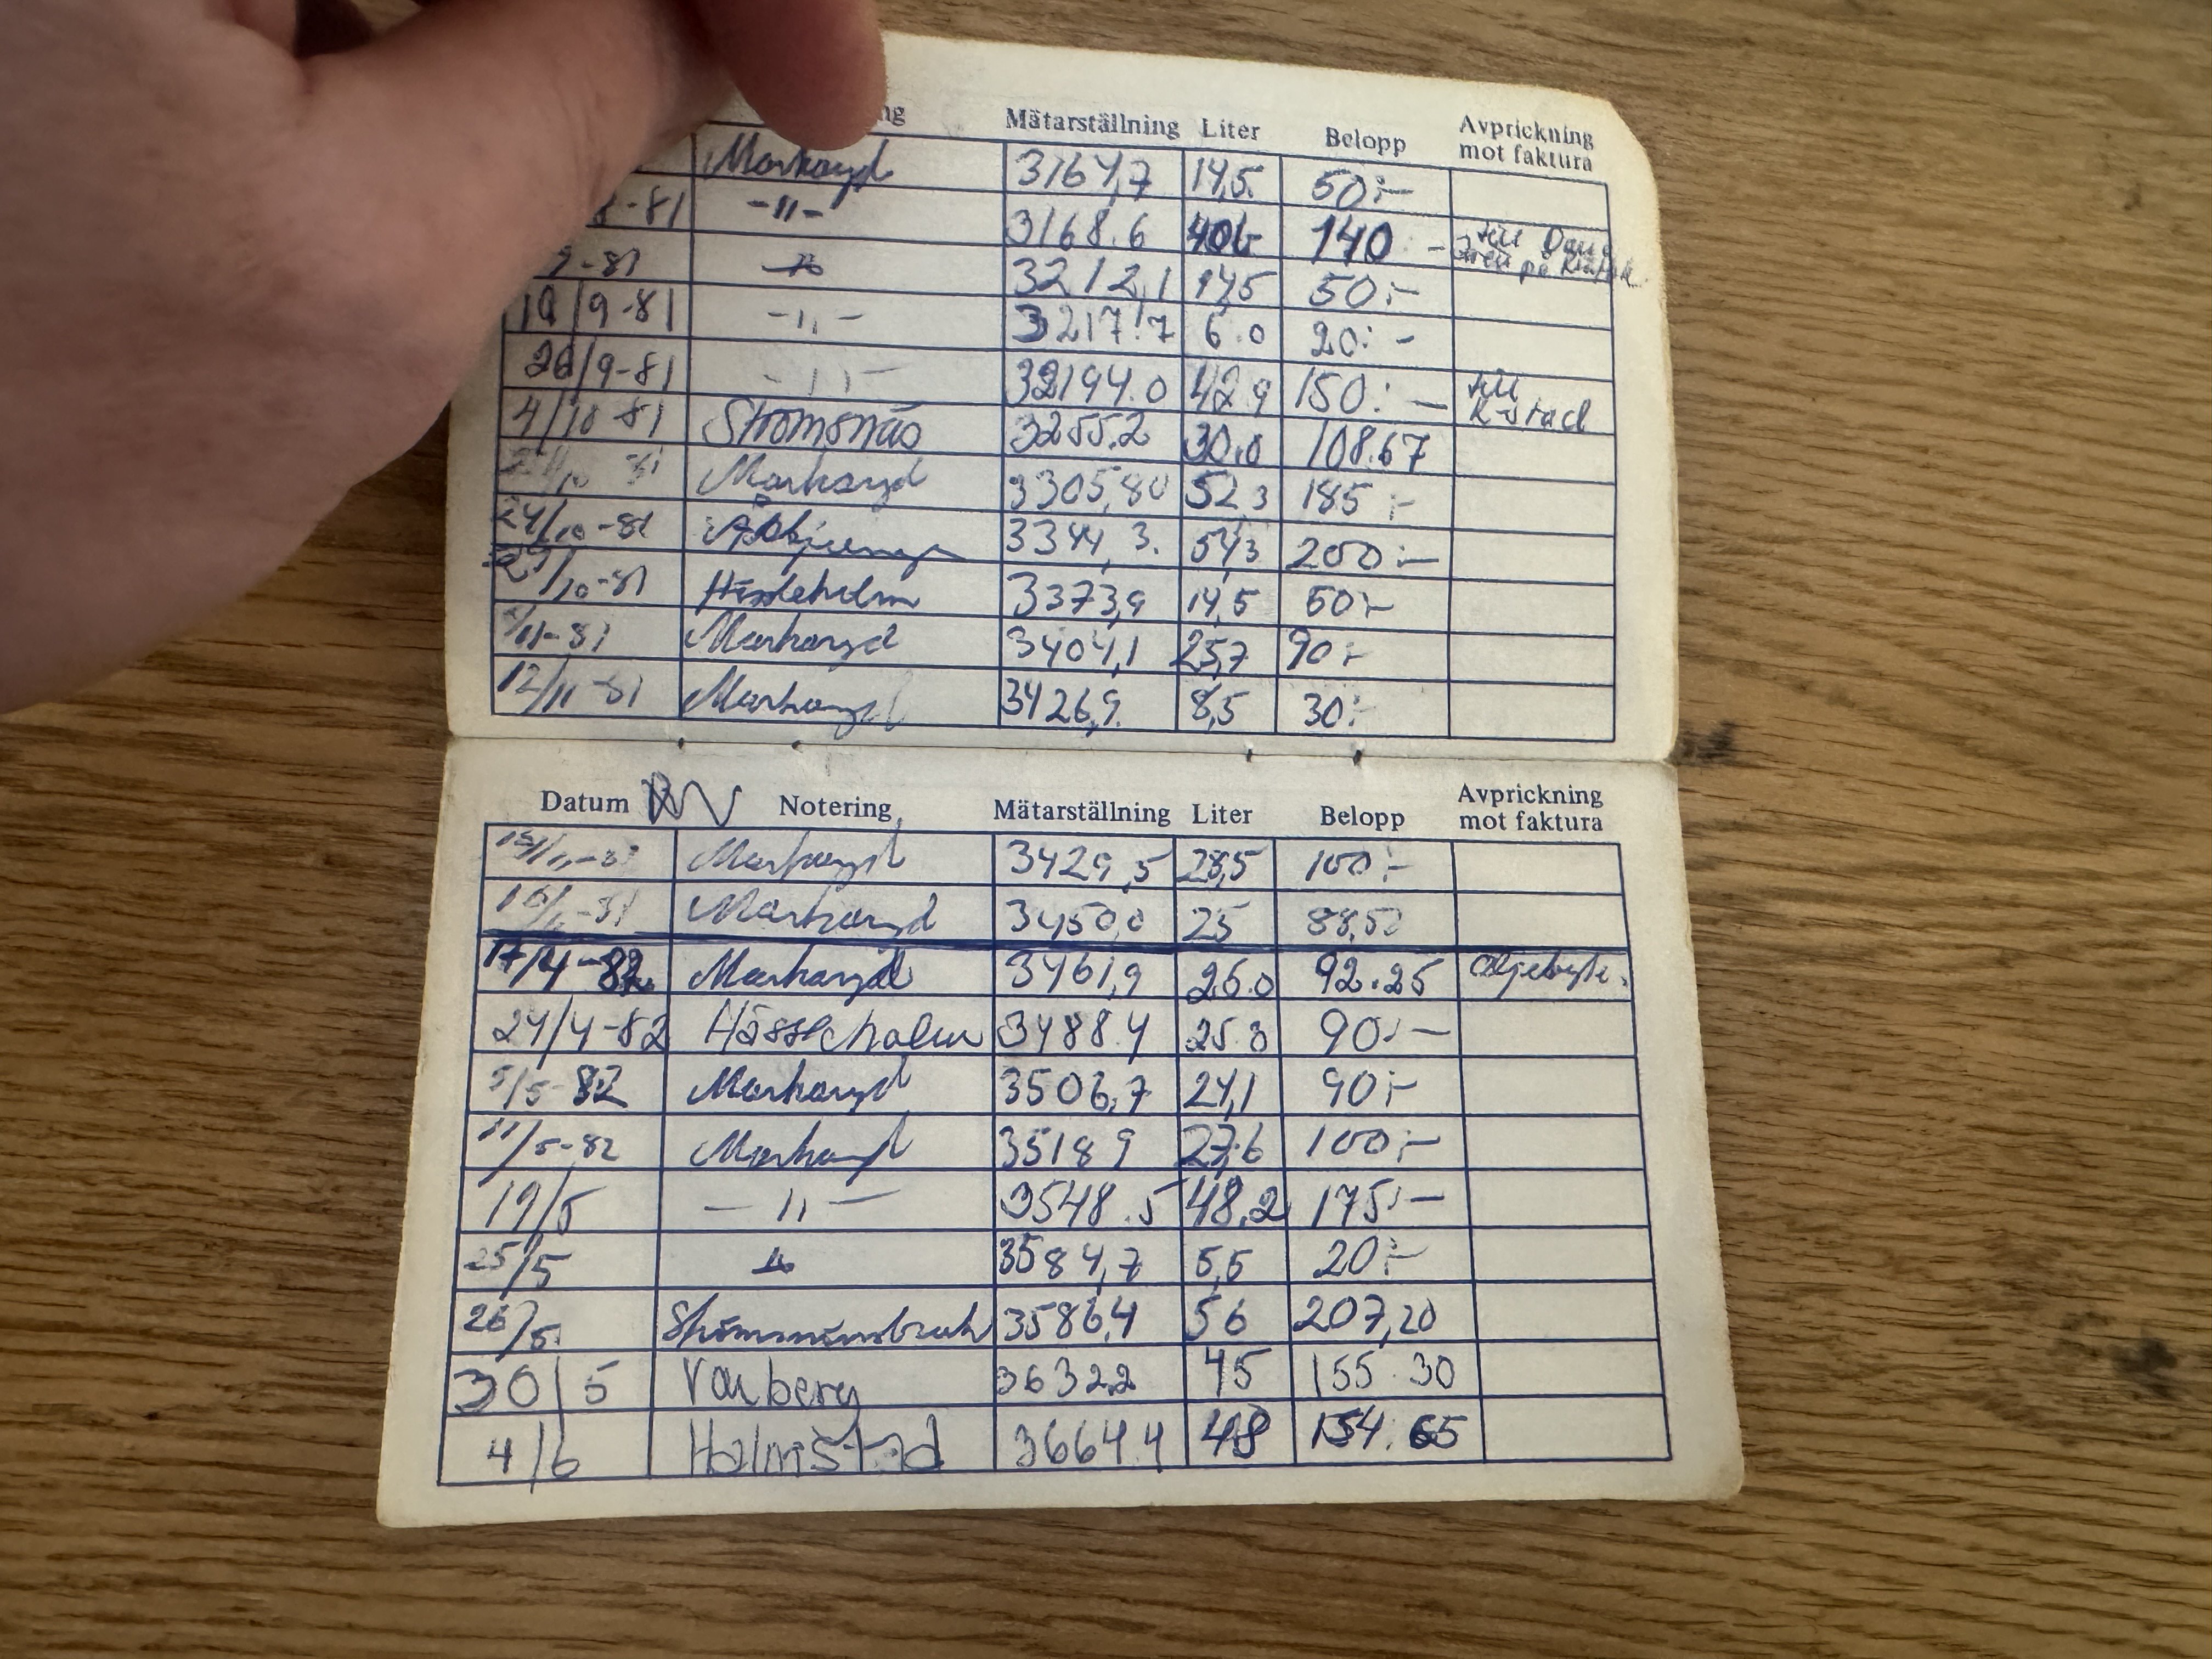 Mätarställning Liter Belopp Avprickning mot faktura
Markaryd 3164,7 14,5 50:-
-81 -"- 3168.6 140 - till
9-81 -"- 3212,1 14,5 50:-
/9-81 -"- 3217.7 6.0 20:-
26/9-81 -"- 32194.0 42.9 150:- till K-stad
4/10-81 Strömsnäs 3255.2 30.0 108.67
81 Markaryd 3305,80 52,3 185:-
24/10-81 3344,3. 54,3 200:-
/10-81 Hässleholm 3373,9 14,5 50:-
/11-81 Markaryd 3404,1 25,7 90:-
12/11-81 Markaryd 3426,9. 8,5 30:-
Datum Notering Mätarställning Liter Belopp Avprickning mot faktura
Markaryd 3429,5 28,5 100:-
Markaryd 3450,0 25 88,50
17/4-82 Markaryd 3461,9 26.0 92.25 Oljebyte.
24/4-82 Hässleholm 3488.4 25.3 90:-
5/5-82 Markaryd 3506,7 24,1 90:-
11/5-82 Markaryd 35189 27,6 100:-
19/5 -"- 3548.5 48,2 175:-
25/5 -"- 3584,7 5,5 20:-
26/5 Strömsnäsbruk 3586,4 56 207,20
30/5 Varberg 3632.2 45 155.30
4/6 Halmstad 3664.4 48 154.65